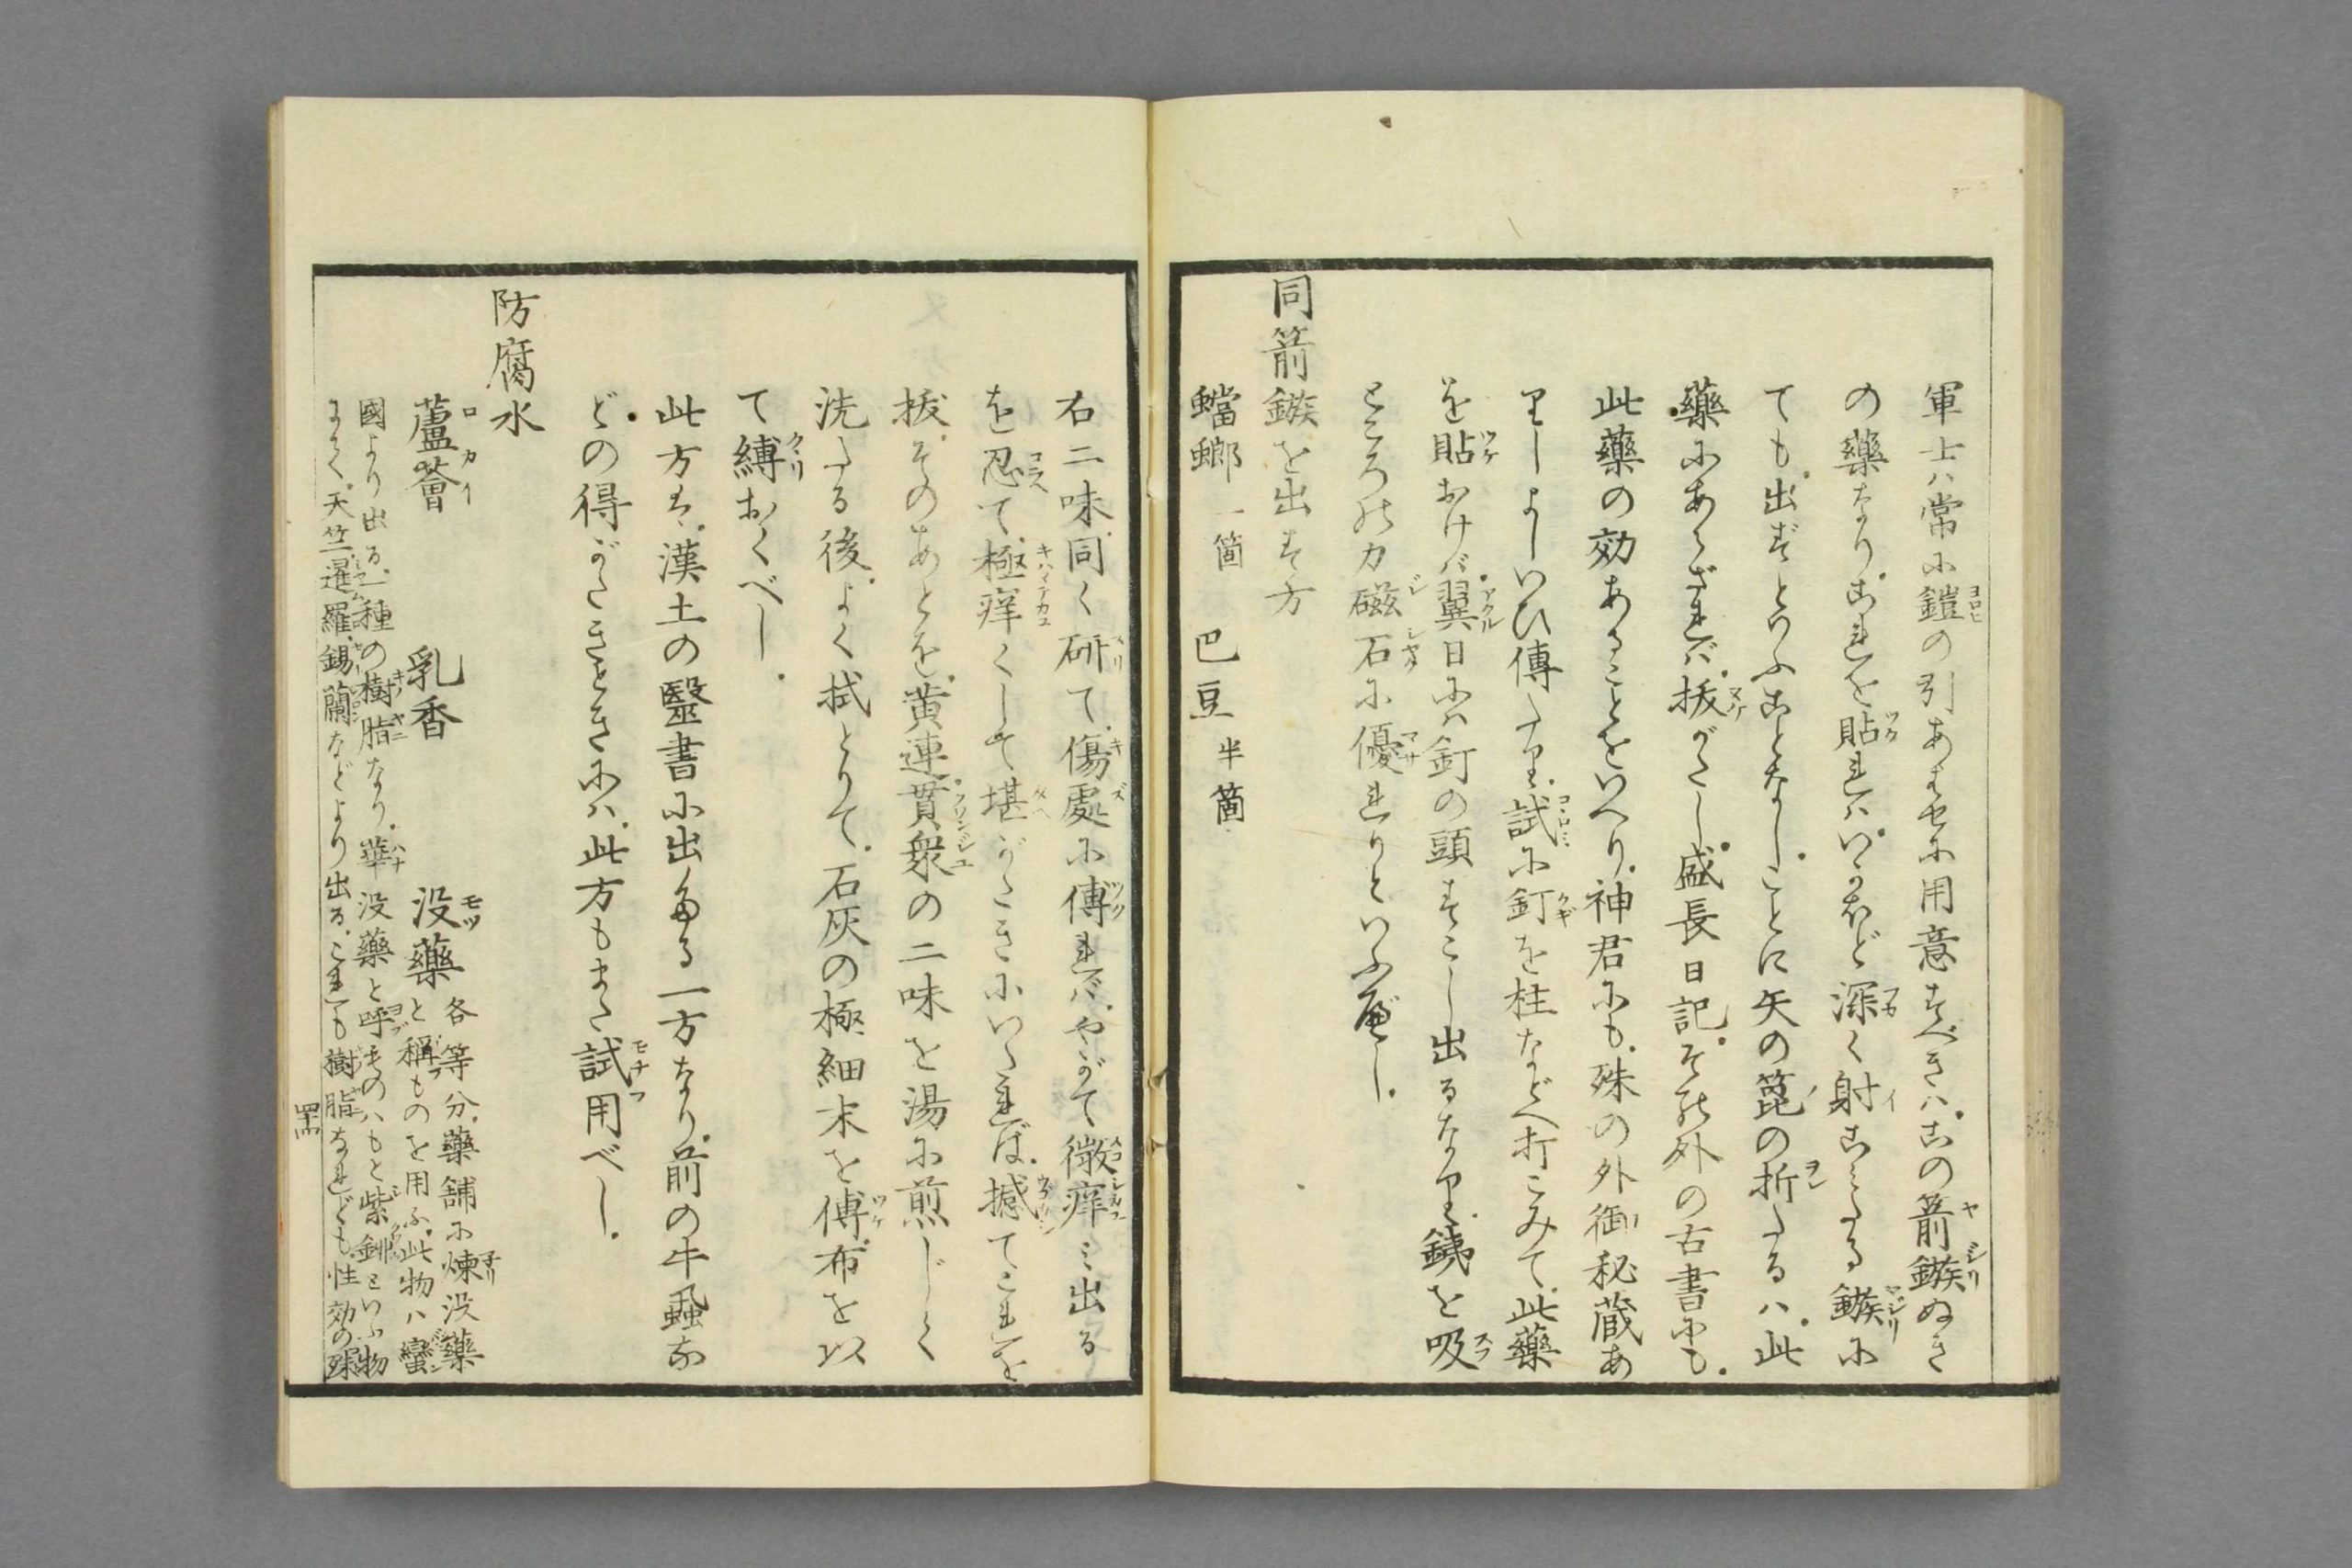 軍士ハ常に鎧の引あはせに用意すべきハ。この箭鏃ぬき
の藥なり。これを貼れハ。いかほど深く射こみたる鏃に
ても。出ずといふことなし。ことに矢の箆の折たるハ。此
藥にあらざれバ。抜がたし。盛長日記。その外の古書にも。
此藥の効あることをいへり。神君にも。殊の外御秘蔵あ
りしよしいひ傳たり。試に釘を柱などへ打こみて。此藥
を貼おけバ。翼日にハ釘の頭すこし出るなり。銕を吸
ところの力磁石に優れりといふべし。
同箭鏃を出す方
蟷螂 一箇 巴豆 半箇
右二味。同く研て。傷處に傅れバ。やがて微痒ミ出る
を忍て。極痒くして堪がたきにいたれば。撼てこれを
抜。そのあとを。黄連。貫衆の二味を湯に煎じて
洗たる後。よく拭とりて。石灰の極細末を傅。布を以
て縛おくべし。
此方は。漢土の醫書に出たる一方なり。前の牛蝨な
どの得がたきときにハ。此方もまた試用べし。
防腐水
蘆薈 乳香 没藥 各等分。藥舗に煉没藥
と稱ものを用ふ。此物ハ蠻
國より出る。一種の樹脂なり。華没藥と呼ものハもと紫鉚といふ物
にて。天竺暹羅。錫蘭などより出る。これも樹脂なれども。性効の殊